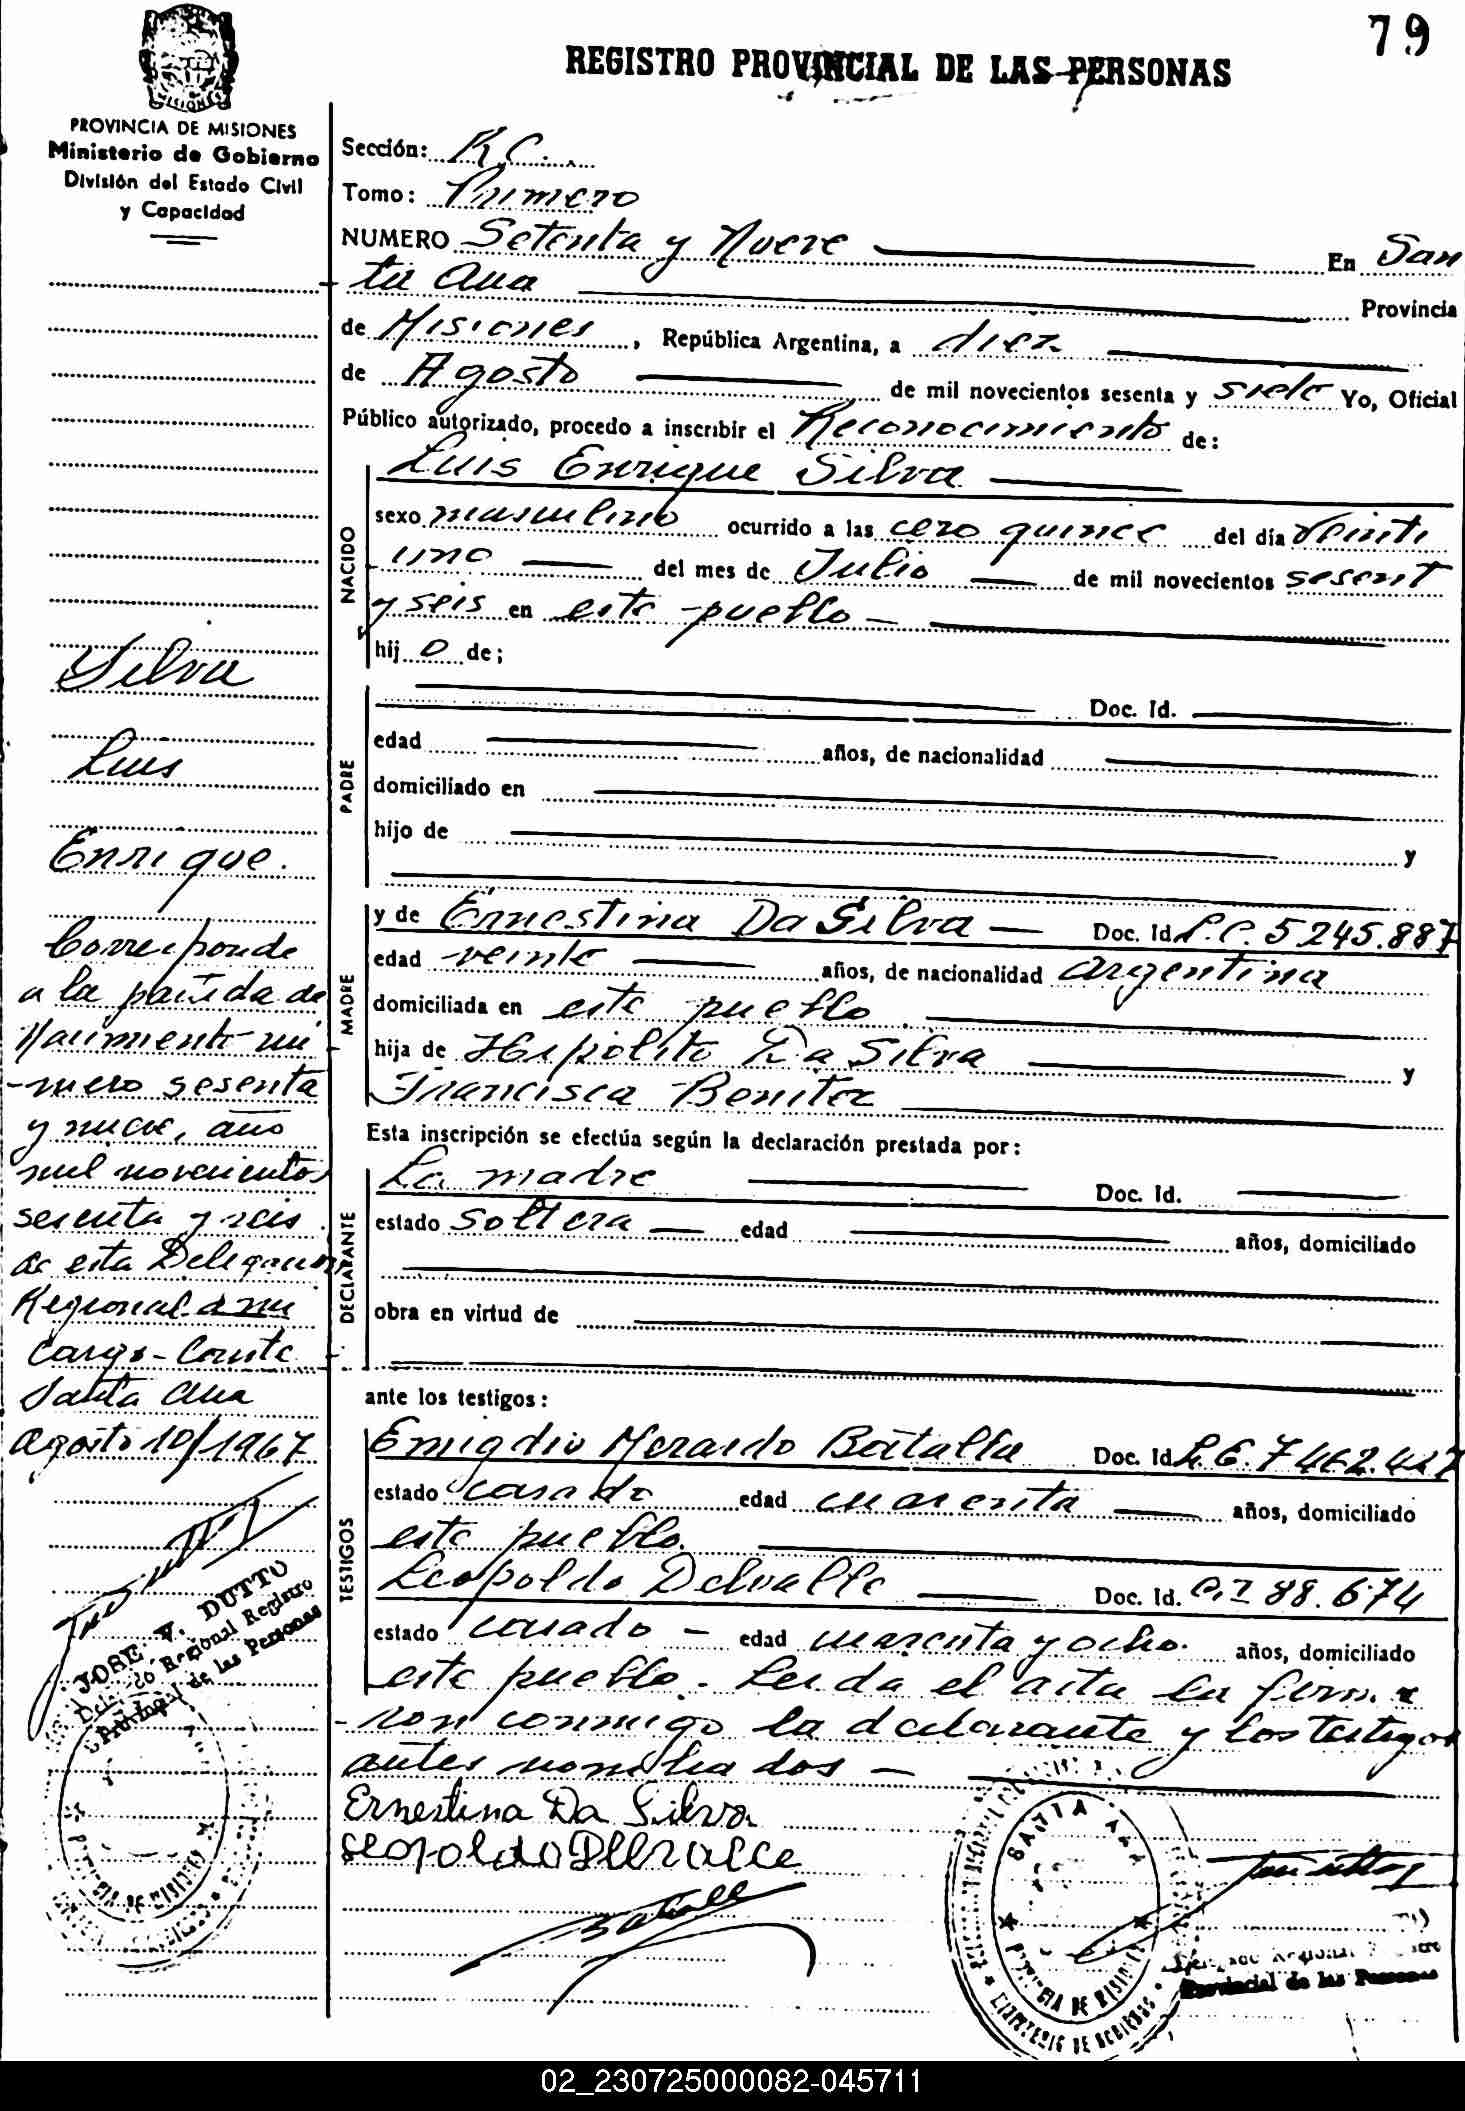 79
REGISTRO PROVINCIAL DE LAS PERSONAS
MISIONES
PROVINCIA DE MISIONES
Ministerio de Gobierno
División del Estado Civil
y Capacidad
Silva
Luis
Enrique.
Corresponde
a la partida de
Nacimiento nú
-mero sesenta
y nueve, año
mil novecientos
sesenta y seis
de esta Delegacion
Regional a mi
Cargo-Conste
Santa Ana
Agosto 10/1967
JOSE V. DUTTO
Delegado Regional Registro
Provincial de las Personas
Sección: R.C.
Tomo: Primero
NUMERO Setenta y Nueve En San
ta Ana Provincia
de Misiones, República Argentina, a diez
de Agosto de mil novecientos sesenta y siete Yo, Oficial
Público autorizado, procedo a inscribir el Reconocimiento de:
NACIDO
Luis Enrique Silva
sexo masculino ocurrido a las cero quince del día veinti
uno del mes de Julio de mil novecientos sesent
y seis en este pueblo
hijo de;
PADRE
Doc. Id.
edad años, de nacionalidad
domiciliado en
hijo de y
MADRE
y de Ernestina Da Silva Doc. Id. L.C. 5245.887
edad veinte años, de nacionalidad argentina
domiciliada en este pueblo
hija de Hipólito Da Silva y
Francisca Benitez
Esta inscripción se efectúa según la declaración prestada por:
DECLARANTE
La madre Doc. Id.
estado soltera edad años, domiciliado
obra en virtud de
ante los testigos:
TESTIGOS
Emigdio Merardo Batalla Doc. Id. L.E. 7462.427
estado casado edad cuarenta años, domiciliado
este pueblo.
Leopoldo Delvalle Doc. Id. C.I 88.674
estado casado - edad cuarenta y ocho. años, domiciliado
este pueblo. Leida el acta la firma
-ron conmigo la declarante y los testigos
antes nombrados -
Ernestina Da Silva
Leopoldo Delvalle
Batalla
SANTA ANA
PROVINCIA DE MISIONES
MINISTERIO DE GOBIERNO
Delegado Regional Registro
Provincial de las Personas
02_230725000082-045711